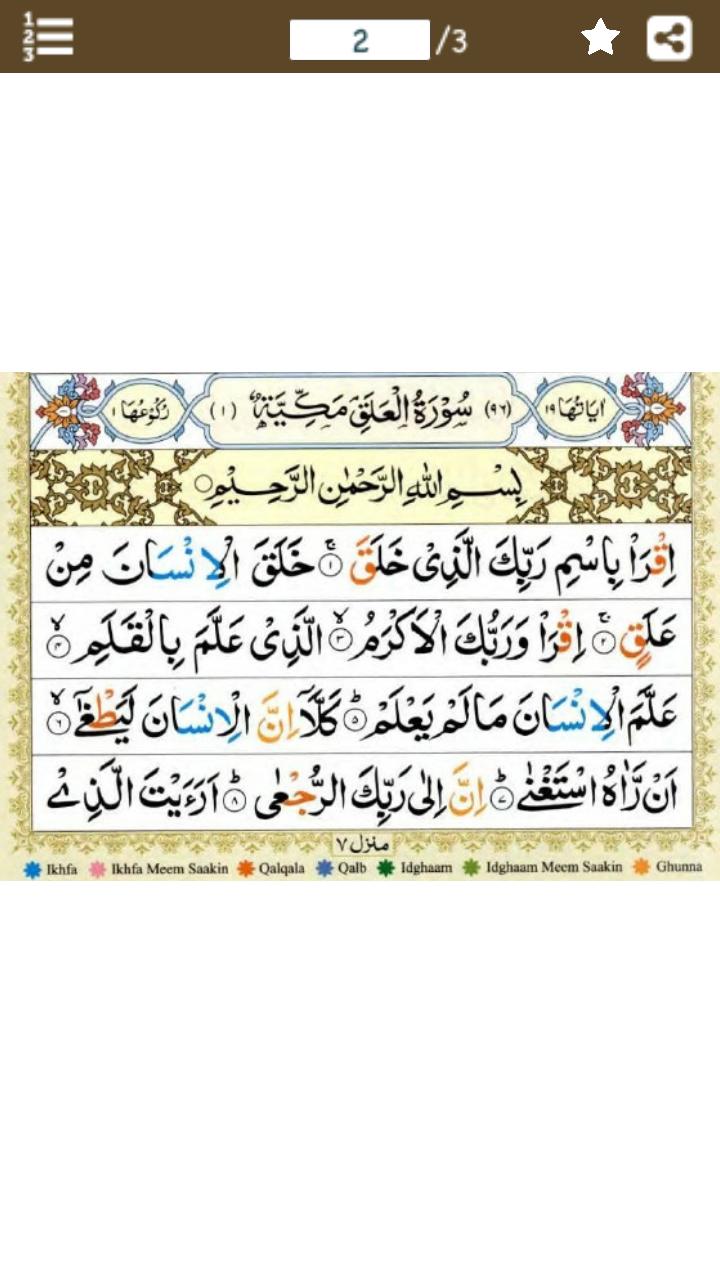 1
2
3
2 /3
اٰيَاتُهَا ١٩ (٩٦) سُوْرَةُ الْعَلَقِ مَكِّيَّةٌ (١) رُكُوْعُهَا ١
بِسْمِ اللّٰهِ الرَّحْمٰنِ الرَّحِيْمِ
اِقْرَاْ بِاسْمِ رَبِّكَ الَّذِىْ خَلَقَ ۚ ١ خَلَقَ الْاِنْسَانَ مِنْ
عَلَقٍ ۚ ٢ اِقْرَاْ وَرَبُّكَ الْاَكْرَمُ ۙ ٣ الَّذِىْ عَلَّمَ بِالْقَلَمِ ۙ ٤
عَلَّمَ الْاِنْسَانَ مَا لَمْ يَعْلَمْ ؕ ٥ كَلَّاۤ اِنَّ الْاِنْسَانَ لَيَطْغٰٓى ۙ ٦
اَنْ رَّاٰهُ اسْتَغْنٰى ؕ ٧ اِنَّ اِلٰى رَبِّكَ الرُّجْعٰى ؕ ٨ اَرَءَيْتَ الَّذِىْ
منزل ٧
Ikhfa Ikhfa Meem Saakin Qalqala Qalb Idghaam Idghaam Meem Saakin Ghunna